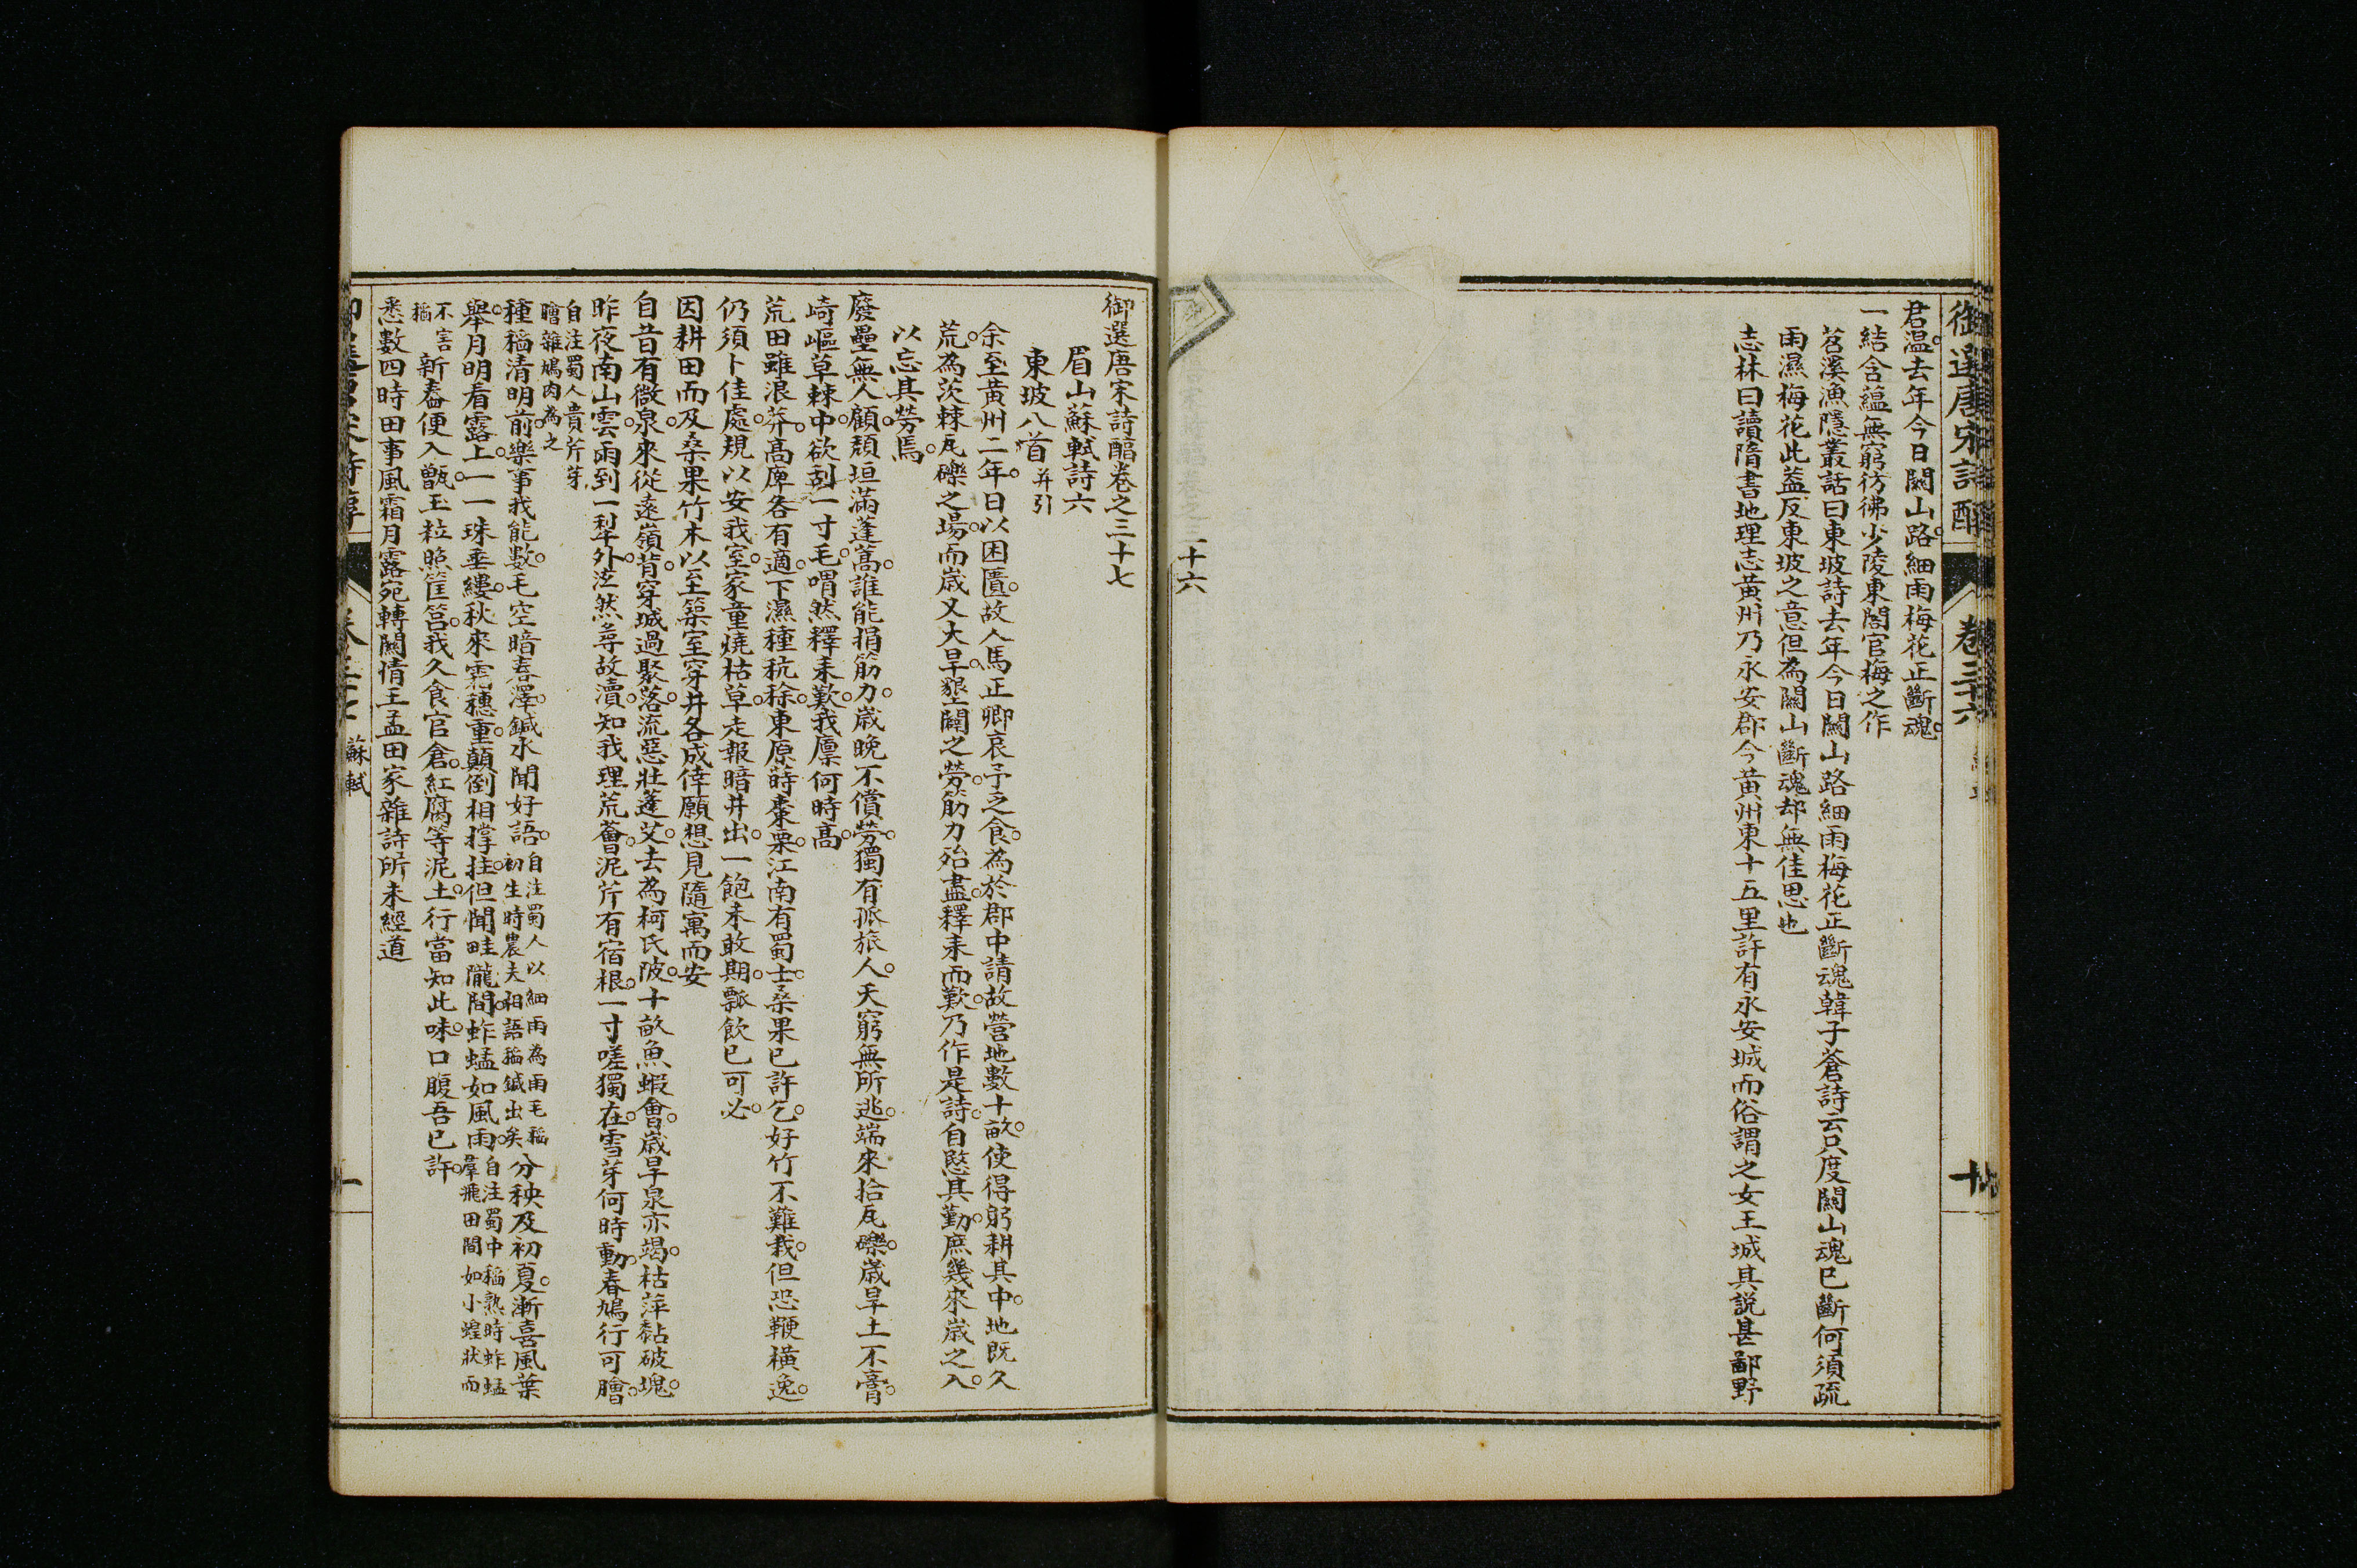 御選唐宋詩醇
卷三十六
君溫去年今日關山路細雨梅花正斷魂
一結含蘊無窮彷彿少陵東閣官梅之作
苕溪漁隱叢話曰東坡詩去年今日關山路細雨梅花正斷魂韓子蒼詩云只度關山魂已斷何須疏
雨濕梅花此蓋反東坡之意但為關山斷魂却無佳思也
志林曰讀隋書地理志黃州乃永安郡今黃州東十五里許有永安城而俗謂之女王城其說甚鄙野
十六
御選唐宋詩醇卷之三十七
眉山蘇軾詩六
東坡八首并引
余至黃州二年日以困匱故人馬正卿哀予乏食為於郡中請故營地數十畝使得躬耕其中地既久
荒為茨棘瓦礫之場而歲又大旱墾闢之勞筋力殆盡釋耒而歎乃作是詩自愍其勤庶幾來歲之入
以忘其勞焉
廢壘無人顧頹垣滿蓬蒿誰能捐筋力歲晚不償勞獨有孤旅人天窮無所逃端來拾瓦礫歲旱土不膏
崎嶇草棘中欲刮一寸毛喟然釋耒歎我廩何時高
荒田雖浪莽高庳各有適下濕種秔稌東原蒔棗栗江南有蜀士桑果已許乞好竹不難栽但恐鞭橫逸
仍須卜佳處規以安我室家童燒枯草走報暗井出一飽未敢期瓢飲已可必
因耕田而及桑果竹木以至築室穿井各成倖願想見隨寓而安
自昔有微泉來從遠嶺背穿城過聚落流惡壯蓬艾去為柯氏陂十畝魚蝦會歲旱泉亦竭枯萍黏破塊
昨夜南山雲雨到一犂外泫然尋故瀆知我理荒薈泥芹有宿根一寸嗟獨在雪芽何時動春鳩行可膾
自注蜀人貴芹芽
膾雜鳩肉為之
種稻清明前樂事我能數毛空暗春澤鍼水聞好語自注蜀人以細雨為雨毛稻
初生時農夫相語稻鍼出矣分秧及初夏漸喜風葉
舉月明看露上一一珠垂縷秋來霜穗重顛倒相撐拄但聞畦隴間蚱蜢如風雨自注蜀中稻熟時蚱蜢
羣飛田間如小蝗狀而
不害
稻新舂便入甑玉粒照筐筥我久食官倉紅腐等泥土行當知此味口腹吾已許
悉數四時田事風霜月露宛轉關情王孟田家雜詩所未經道
蘇軾
一